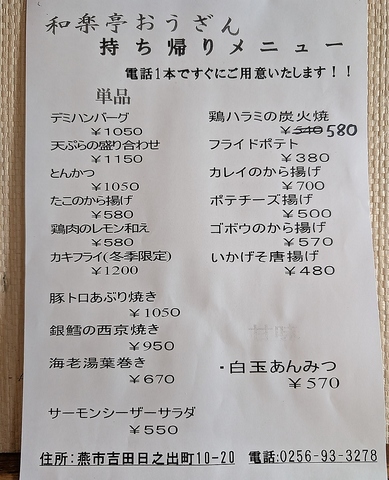 和楽亭おうざん
持ち帰りメニュー
電話1本ですぐにご用意いたします！！
単品
デミハンバーグ
￥1050
天ぷらの盛り合わせ
￥1150
とんかつ
￥1050
たこのから揚げ
￥580
鶏肉のレモン和え
￥580
カキフライ(冬季限定)
￥1200
豚トロあぶり焼き
￥1050
銀鱈の西京焼き
￥950
海老湯葉巻き
￥670
サーモンシーザーサラダ
￥550
鶏ハラミの炭火焼
￥540 580
フライドポテト
￥380
カレイのから揚げ
￥700
ポテチーズ揚げ
￥500
ゴボウのから揚げ
￥570
いかげそ唐揚げ
￥480
・白玉あんみつ
￥570
住所：燕市吉田日之出町10-20 電話:0256-93-3278